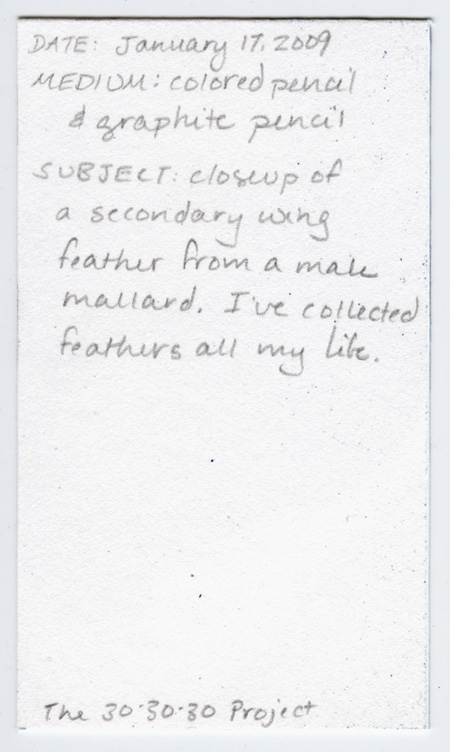 DATE: January 17, 2009
MEDIUM: colored pencil
& graphite pencil
SUBJECT: closeup of
a secondary wing
feather from a male
mallard. I've collected
feathers all my life.
The 30·30·30 Project